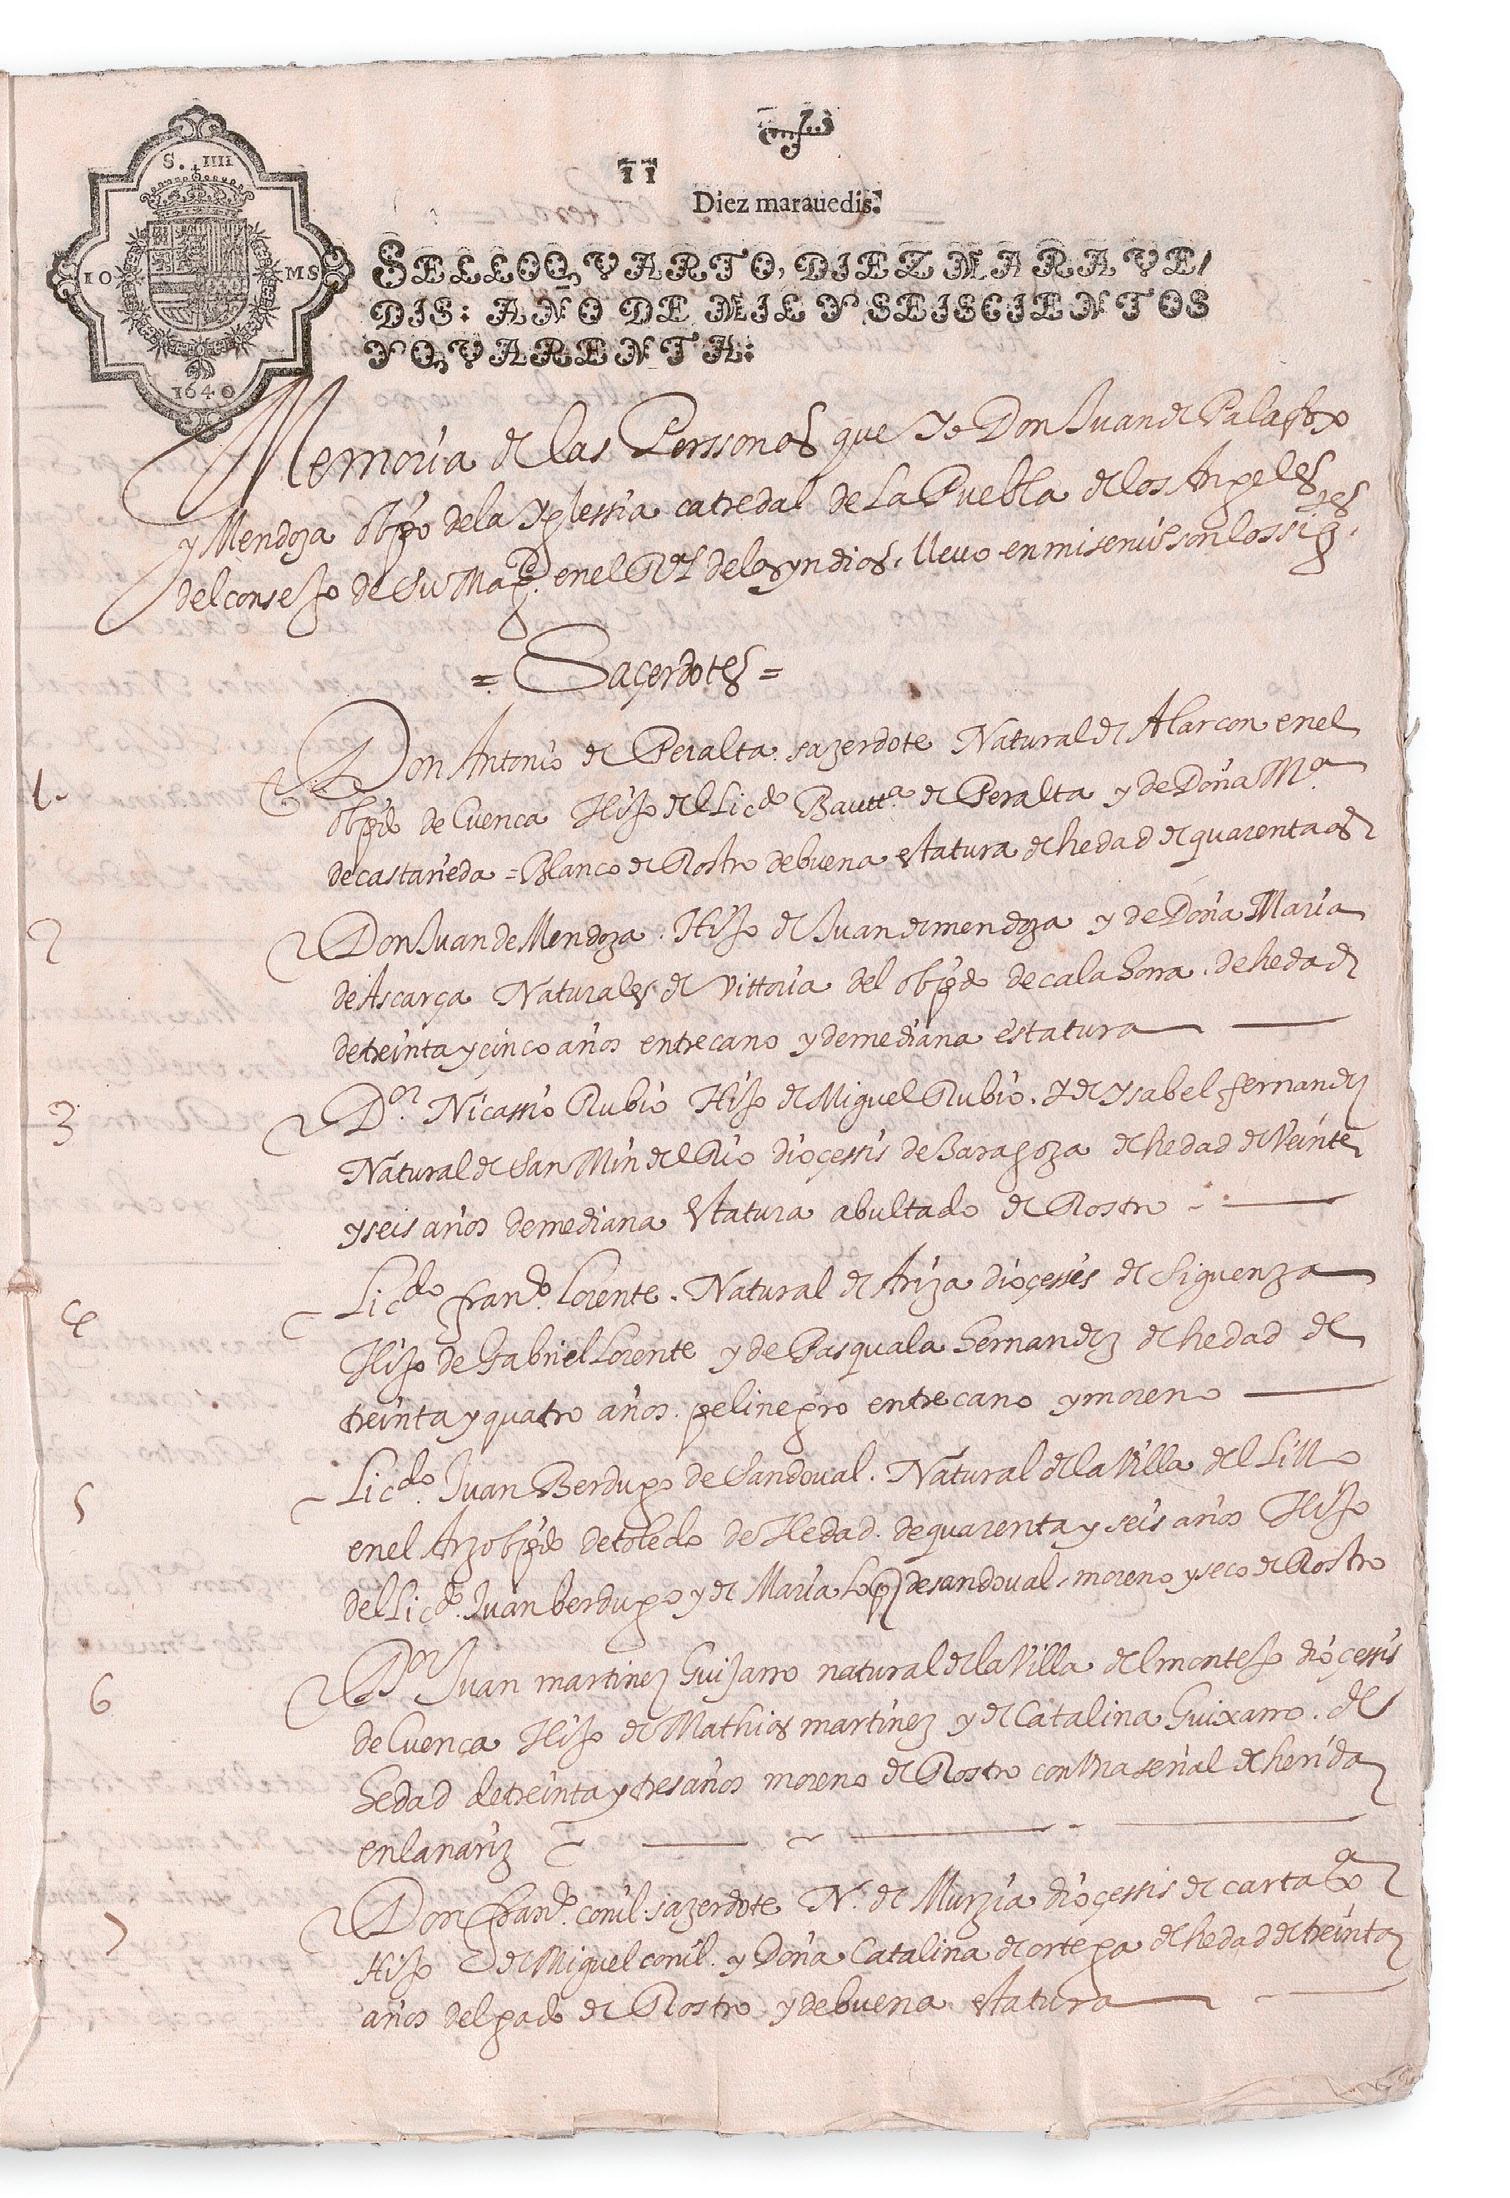 S. IIII
10 MS
1640
Diez marauedis.
SELLO QVARTO, DIEZ MARAVE/
DIS: AÑO DE MIL Y SEISCIENTOS
Y QVARENTA:
Memoria de las Perssonas que Yo Don Juan de Palafox
y Mendoza obpo de la Yglessia catredal de La Puebla de los Angeles
del consejo de Su Magd. en el Rl de las yndias, lleuo en mi seruiº son los sigtes.
= Saçerdotes =
1. Don Antonio de Peralta sazerdote Natural de Alarcon en el
obpdo de Cuenca Hijo del Licdo Bautta. de Peralta y de Doña Ma
de castañeda = Blanco de Rostro de buena estatura de hedad de quarenta as
2 Don Juan de Mendoza. Hijo de Juan de mendoza y de Doña Maria
de Ascarça Naturales de Vittoria del obpdo de calahorra. de hedad
de treinta y çinco años entrecano y de mediana estatura
3 Don. Nicassio Rubio Hijo de Miguel Rubio. Y de Ysabel fernandez
Natural de San Min del Rio dioçessis de Zaragoza de hedad de Veinte
y seis años de mediana estatura abultado de Rostro
4 Licdo franco. Lorente. Natural de Ariza dioçessis de Siguenza
Hijo de Gabriel Lorente y de Pasquala hernandez de hedad de
treinta y quatro años. pelinegro entrecano y moreno
5 Licdo. Juan Berdugo de Sandoual. Natural de la Villa del Lillo
en el Arzobpdo de toledo de Hedad. de quarenta y seis años Hijo
del Licdo. Juan berdugo y de Maria Lopz de sandoual, moreno y seco de Rostro
6 Don Juan martinez Guijarro natural de la Villa del montejo dioçessis
de Cuenca Hijo de Mathias martinez y de Catalina Guixarro. de
hedad de treinta y tres años moreno de Rostro con Vna señal de herida
en la nariz
7 Don franco. conil. sazerdote N. de Murzia dioçessis de cartaga
Hijo de Miguel conil. y Doña Catalina de ortega de hedad de treinta
años delgado de Rostro y de buena estatura